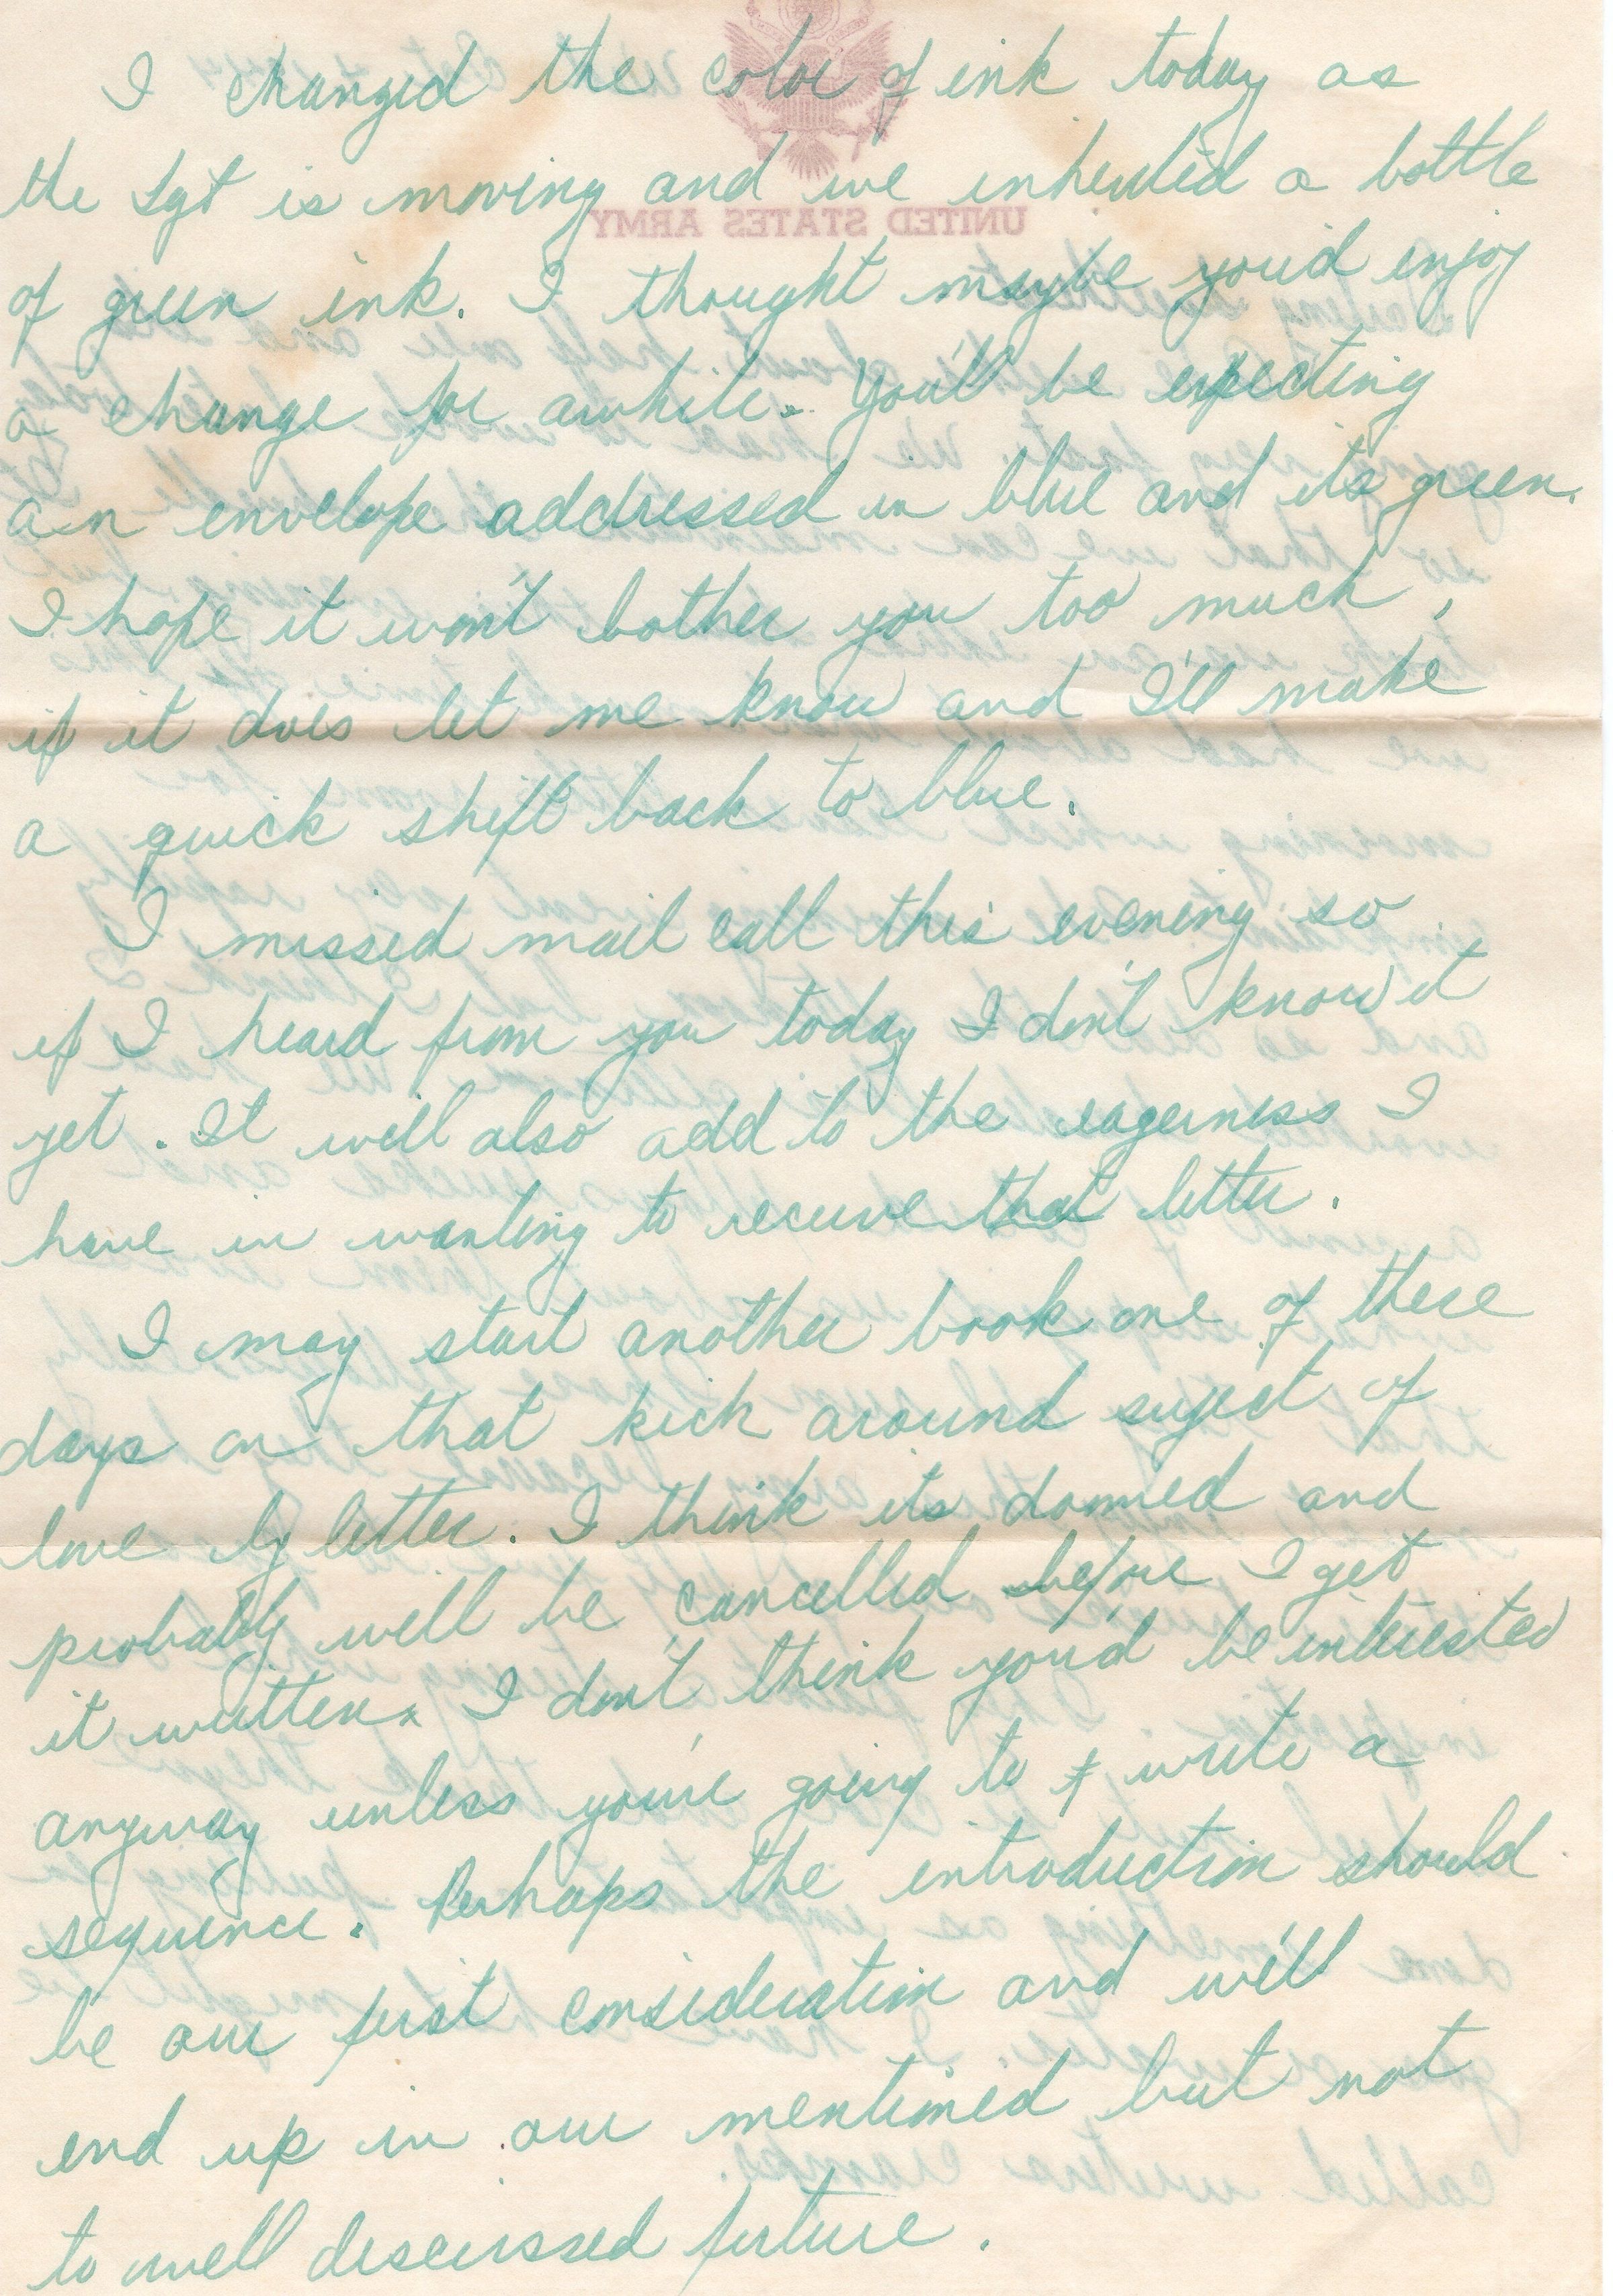 I changed the color of ink today as
the Sgt is moving and we inherited a bottle
UNITED STATES ARMY
of green ink. I thought maybe you'd enjoy
a change for awhile. You'll be expecting
an envelope addressed in blue and its green.
I hope it won't bother you too much,
if it does let me know and I'll make
a quick shift back to blue.
I missed mail call this evening so
if I heard from you today I don't know it
yet. It will also add to the eagerness I
have in wanting to receive that letter.
I may start another book one of these
days on that kick around suject of
love by letter. I think its domned and
probably will be cancelled before I get
it written. I don't think you'd be interested
anyway unless you're going to write a
sequence. Perhaps the introduction should
be our first consideration and we'll
end up in our mentioned but not
to well discussed future.